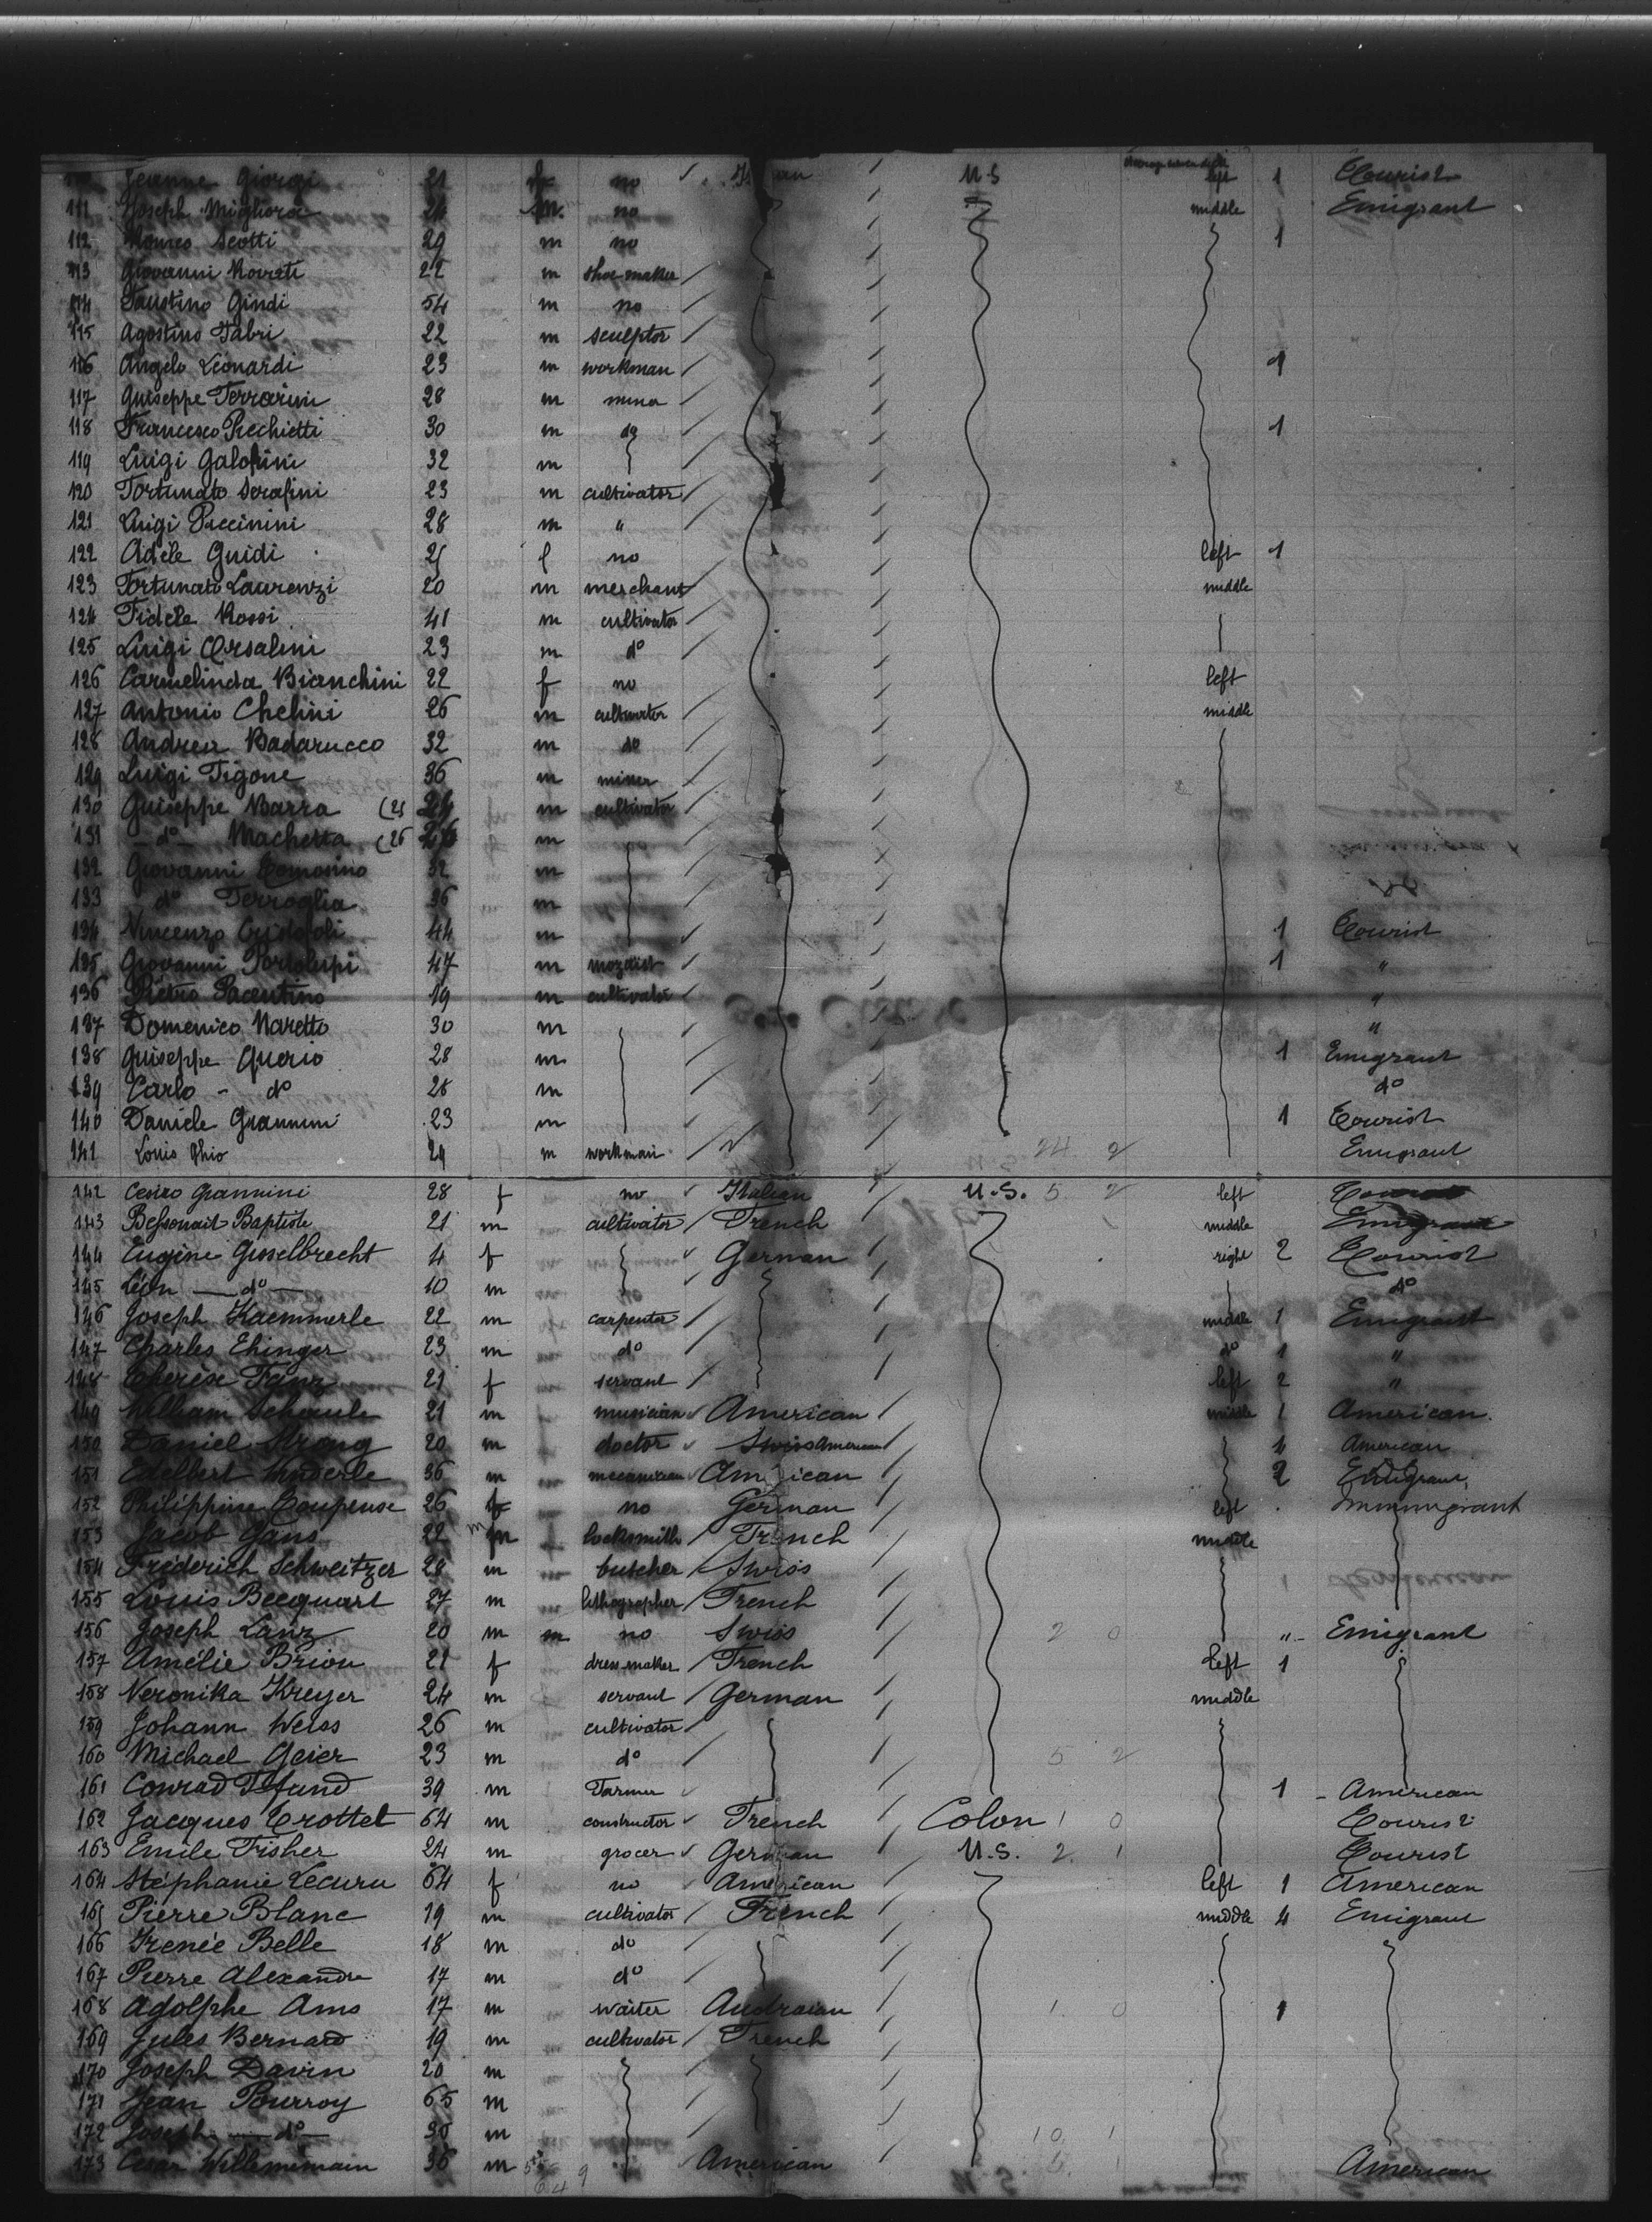 Jeanne Giorgi 21 f no U.S left 1 Tourist
111 Joseph Migliora m. no middle Emigrant
112 Romeo Scotti 29 m no 1
113 Giovanni Rovati 22 m shoe maker
114 Faustino Gindi 54 m no
115 Agostino Fabri 22 m sculptor
116 Angelo Léonardi 23 m workman 1
117 Guiseppe Ferrarini 28 m miner
118 Francesco Picchietti 30 m do 1
119 Luigi Galofini 32 m
120 Fortunato Serafini 23 m cultivator
121 Luigi Piccinini 28 m "
122 Adèle Guidi f no left 1
123 Fortunato Laurenzi 20 m merchant middle
124 Fidèle Rossi 41 m cultivator
125 Luigi Orsalini 23 m do
126 Carmelinda Bianchini 22 f no left
127 Antonio Chelini 26 m cultivator middle
128 Andrea Badarucco 32 m do
129 Luigi Figone 36 m miner
130 Guiseppe Barra m cultivator
131 do Machetta (26 26 m
132 Giovanni Tomasino 32 m
133 do Ferroglia 36 m
134 Vincenzo 44 m 1 Tourist
135 Giovanni Portalupi 47 m mozaist 1 "
136 Pietro Pacentino 19 m cultivator "
137 Domenico Naretto 30 m "
138 Guiseppe Querio 28 m 1 Emigrant
139 Carlo - do 28 m do
140 Daniele Giannini 23 m 1 Tourist
141 Louis Ghio m workman 24 2 Emigrant
142 Cesira Giannini 28 f no Italian U.S. 5 2 left Tourist
143 Bessonait Baptiste 21 m cultivator French middle Emigrant
144 Eugène Gisselbrecht 4 f German right 2 Tourist
145 Léon do 10 m do
146 Joseph Kaemmerle 22 m carpenter middle 1 Emigrant
147 Charles Ehinger 23 m do do 1 "
148 Thérèse 21 f servant left 2 "
149 William Schaule 21 m musician American middle 1 American
150 Daniel Strong 20 m doctor Swiss American 1 American
151 Edelbert Winderle 36 m mecanician American 2 Emigrant
152 Philippine Coupeuse 26 f no German left Immigrant
153 Jacob Gans 22 m locksmith French middle
154 Fréderich Schweitzer 28 m butcher Swiss
155 Louis Becquart 27 m lithographer French
156 Joseph Lanz 20 m m no Swiss 2 0 " Emigrant
157 Amélie Briou 21 f dress maker French left 1
158 Veronika Kreyer 24 m servant German middle
159 Johann Weiss 26 m cultivator
160 Michael Geier 23 m do 5 2
161 Conrad Pfund 39 m Farmer 1 American
162 Jacques Trottet 64 m constructor French Colon 1 0 Tourist
163 Emile Fisher 24 m grocer German U.S. 2 1 Tourist
164 Stéphanie Lecuru 64 f no American left 1 American
165 Pierre Blanc 19 m cultivator French middle 4 Emigrant
166 Irenée Belle 18 m do
167 Pierre Alexandre 17 m do
168 Adolphe Ams 17 m waiter 1 0 1
169 Jules Bernard 19 m cultivator French
170 Joseph Davin 20 m
171 Jean Pourroy 65 m
172 Joseph do 30 m 10 1
173 Cesar Willemimain 36 m American American